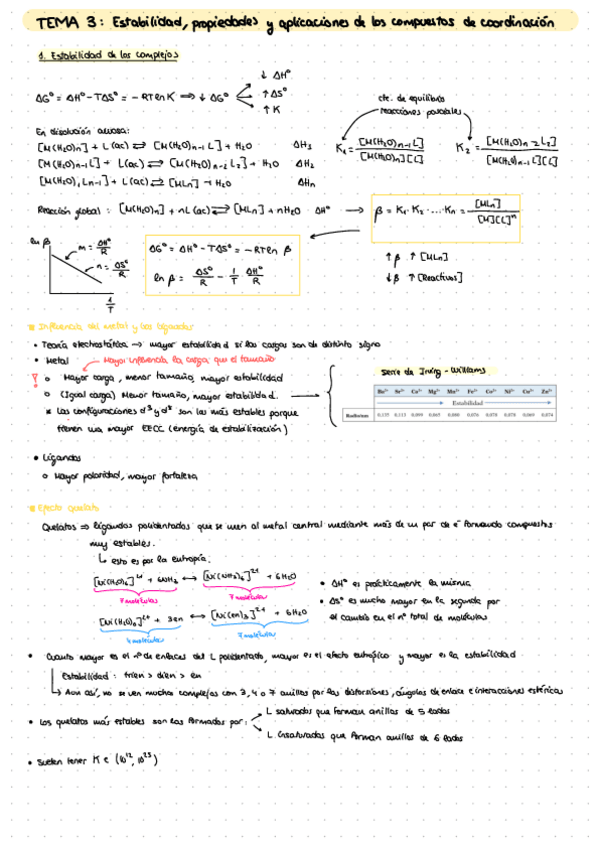 TEMA 3: Estabilidad, propiedades y aplicaciones de los compuestos de coordinación
1. Estabilidad de los complejos
ΔG° = ΔH° - TΔS° = - RTlnK → ↓ ΔG°
↓ ΔH°
↑ ΔS°
↑ K
En disolución acuosa:
cte. de equilibrio
reacciones parciales
[M(H2O)n] + L(ac) ⇌ [M(H2O)n-1 L] + H2O ΔH1
K1 = [M(H2O)n-1 L] / [M(H2O)n][L]
K2 = [M(H2O)n-2 L2] / [M(H2O)n-1 L][L]
[M(H2O)n-1 L] + L(ac) ⇌ [M(H2O)n-2 L2] + H2O ΔH2
[M(H2O), Ln-1] + L(ac) ⇌ [MLn] + H2O ΔHn
Reacción global: [M(H2O)n] + nL(ac) ⇌ [MLn] + nH2O ΔH° →
β = K1 · K2 · ... · Kn = [MLn] / [M][L]^n
ln β
m = ΔH°/R
n = ΔS°/R
1/T
ΔG° = ΔH° - TΔS° = - RTln β
ln β = ΔS°/R - 1/T ΔH°/R
↑ β ↑ [MLn]
↓ β ↑ [Reactivos]
Influencia del metal y los ligandos
• Teoría electrostática → mayor estabilidad si las cargas son de distinto signo
• Metal
Mayor influencia la carga que el tamaño
! o Mayor carga, menor tamaño, mayor estabilidad
o (Igual carga) Menor tamaño, mayor estabilidad.
* Las configuraciones d³ y d⁸ son las más estables porque
tienen una mayor EECC (energía de estabilización)
Serie de Irving-Williams
Ba²⁺ Sr²⁺ Ca²⁺ Mg²⁺ Mn²⁺ Fe²⁺ Co²⁺ Ni²⁺ Cu²⁺ Zn²⁺
Estabilidad
Radio/nm 0,135 0,113 0,099 0,065 0,080 0,076 0,078 0,078 0,069 0,074
• Ligandos
o Mayor polaridad, mayor fortaleza
Efecto quelato
Quelatos ⇒ ligandos polidentados que se unen al metal central mediante más de un par de e⁻ formando compuestos
muy estables.
↳ esto es por la entropía.
[Ni(H2O)6]²⁺ + 6NH3 ↔ [Ni(NH3)6]²⁺ + 6H2O
7 moléculas
7 moléculas
[Ni(H2O)6]²⁺ + 3en ↔ [Ni(en)3]²⁺ + 6H2O
4 moléculas
7 moléculas
• ΔH° es prácticamente la misma
• ΔS° es mucho mayor en la segunda por
el cambio en el nº total de moléculas
• Cuanto mayor es el nº de enlaces del L polidentado, mayor es el efecto entrópico y mayor es la estabilidad
Estabilidad: trien > dien > en
↳ Aun así, no se ven muchos complejos con 3, 4 o 7 anillos por las distorsiones, ángulos de enlace e interacciones estéricas
• Los quelatos más estables son los formados por:
L saturados que forman anillos de 5 lados
L insaturados que forman anillos de 6 lados
• Suelen tener K ∈ (10¹², 10²⁵)